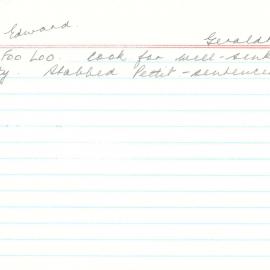 Edward.
Geraldt
Foo Loo. Cook for well-sink
ty. Stabbed Pettit - sentence